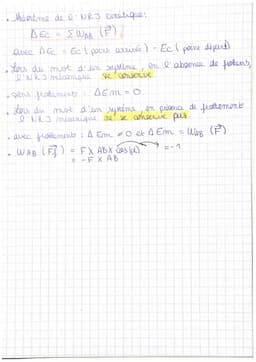 • Théorème de l'NRJ cinétique:
ΔEc = ΣWAB (F⃗)
avec ΔEc = Ec (point arrivée) - Ec (point départ)
• Lors du mvt d'un système, en l'absence de frottements,
l'NRJ mécanique se conserve
• sans frottements : ΔEm = 0
• Lors du mvt d'un système, en présence de frottements
l'NRJ mécanique ne se conserve pas
• avec frottements : ΔEm ≠ 0 et ΔEm = WAB (F⃗)
• WAB (F⃗) = F × AB × cos(α) = -1
= -F × AB